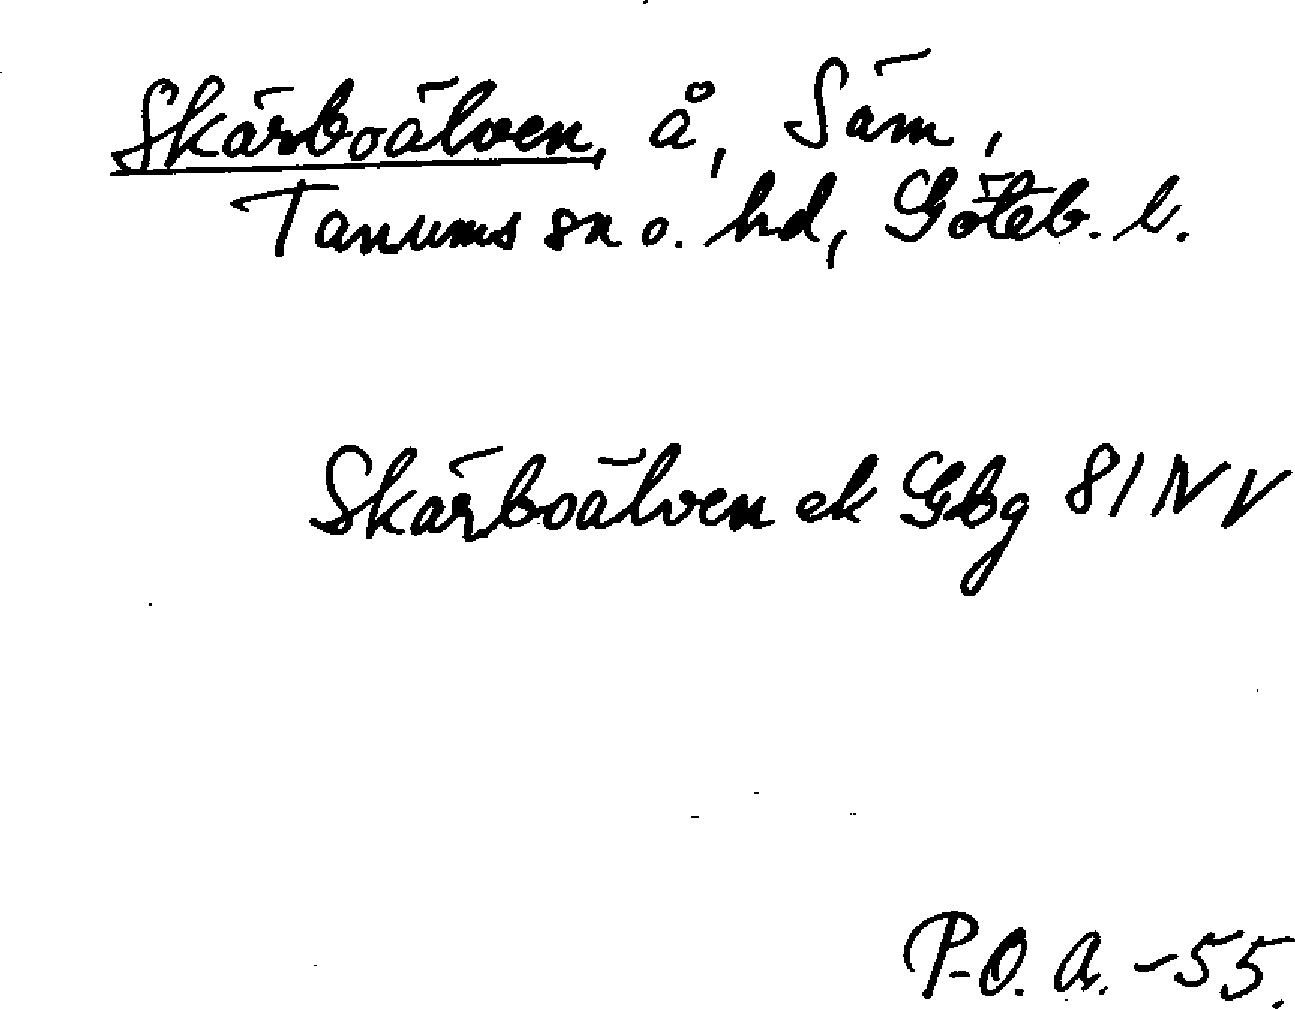 Skärboälven, å, Säm,
Tanums sn o. hd, Göteb. l.
Skärboälven ek Gbg 81 NV
P-O. A. -55.